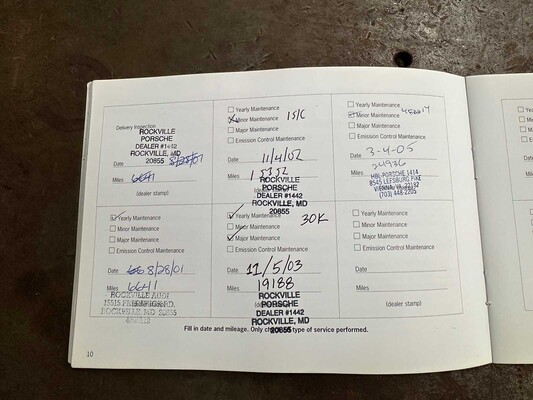 Delivery Inspection
ROCKVILLE
PORSCHE
DEALER #1442
ROCKVILLE, MD
20855
Date 8/28/01
Miles 6641
(dealer stamp)
Yearly Maintenance
Minor Maintenance 15K
Major Maintenance
Emission Control Maintenance
Date 11/4/02
Miles 15352
ROCKVILLE
PORSCHE
DEALER #1442
ROCKVILLE, MD
20855
Yearly Maintenance
Minor Maintenance
Major Maintenance
Emission Control Maintenance
Date 3-4-05
Miles 24936
HBL-PORSCHE 1414
8545 LEESBURG PIKE
VIENNA, VA. 22182
(703) 448-2205
Yearly Maintenance
Minor Maintenance
Major Maintenance
Emission Control Maintenance
Date 8/28/01
Miles 6641
ROCKVILLE AUDI
ROCKVILLE, MD 20855
Yearly Maintenance
30K
Minor Maintenance
Major Maintenance
Emission Control Maintenance
Date 11/5/03
Miles 19188
ROCKVILLE
PORSCHE
DEALER #1442
ROCKVILLE, MD
20855
Yearly Maintenance
Minor Maintenance
Major Maintenance
Emission Control Maintenance
Date
Miles
(dealer stamp)
Fill in date and mileage. Only type of service performed.
10